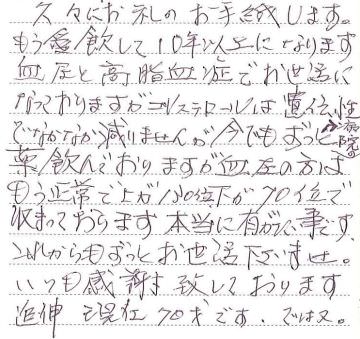 久々にお礼のお手紙します。
もう愛飲して10年以上になります
血圧と高脂血症でお世話に
なっておりますがコレステロールは遺伝性
でなかなか減りませんが今でもずっと病院の
薬飲んでおりますが血圧の方は
もう正常で上が130位下が70位で
収まっております本当に有がたい事です。
これからもずっとお世話下さいませ。
いつも感謝致しております
追伸 現在70才です。では又。